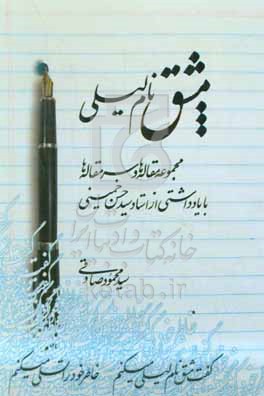 مشق نام لیلی
مجموعه مقاله‌ها و سرمقاله‌ها
با یادداشتی از استاد سید حسن حسینی
سید محمود صادقی
خانه کتاب و ادبیات ایران
گفت مشق نام لیلی میکنم خاطر خود را تسلی میکنم